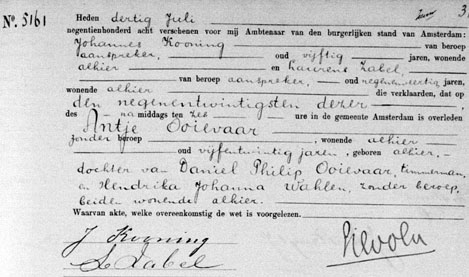 Nº. 5161
3.
Heden dertig Juli
negentienhonderd acht verschenen voor mij Ambtenaar van den burgerlijken stand van Amsterdam:
Johannes Kooning van beroep
aanspreker, oud vijftig jaren, wonende
alhier en Laurens Zabel,
van beroep aanspreker, oud negenendertig jaren,
wonende alhier die verklaarden, dat op
den negenentwintigsten dezer
des namiddags ten zes ure in de gemeente Amsterdam is overleden
Antje Ooievaar
zonder beroep, wonende alhier
oud vijfentwintig jaren, geboren alhier,
dochter van Daniel Philip Ooievaar, timmerman,
en Hendrika Johanna Wahlen, zonder beroep,
beiden wonende alhier.
Waarvan akte, welke overeenkomstig de wet is voorgelezen.
J Kooning
L Zabel